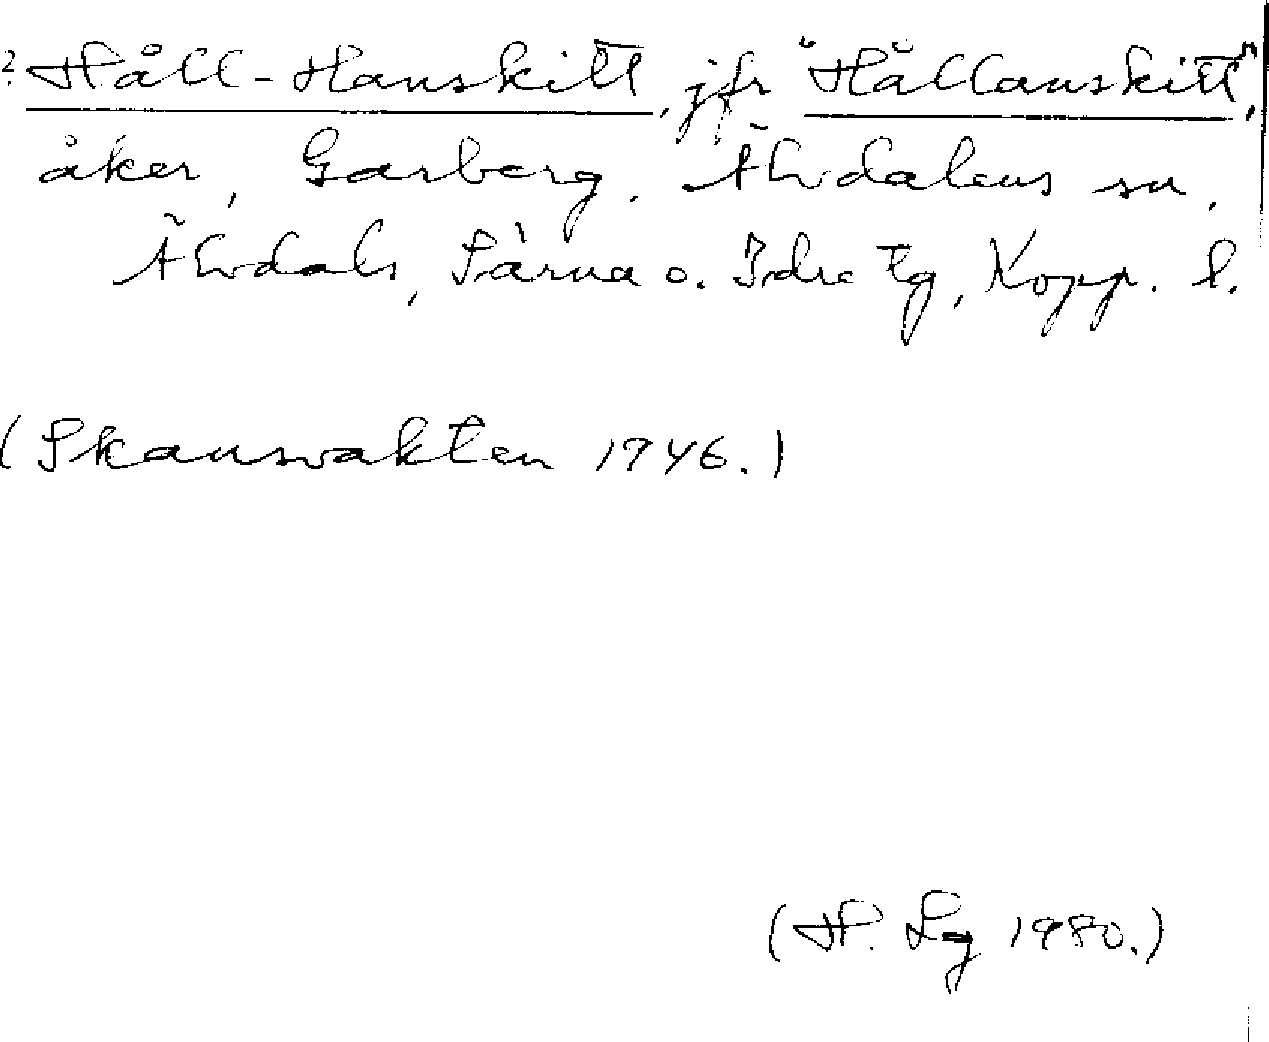 ? Håll-Hanskitt, jfr "Hållanskitt",
åker, Garberg, Älvdalens sn,
Älvdals, Särna o. Idre tg, Kopp. l.
(Skansvakten 1946.)
(H. Lg 1980.)